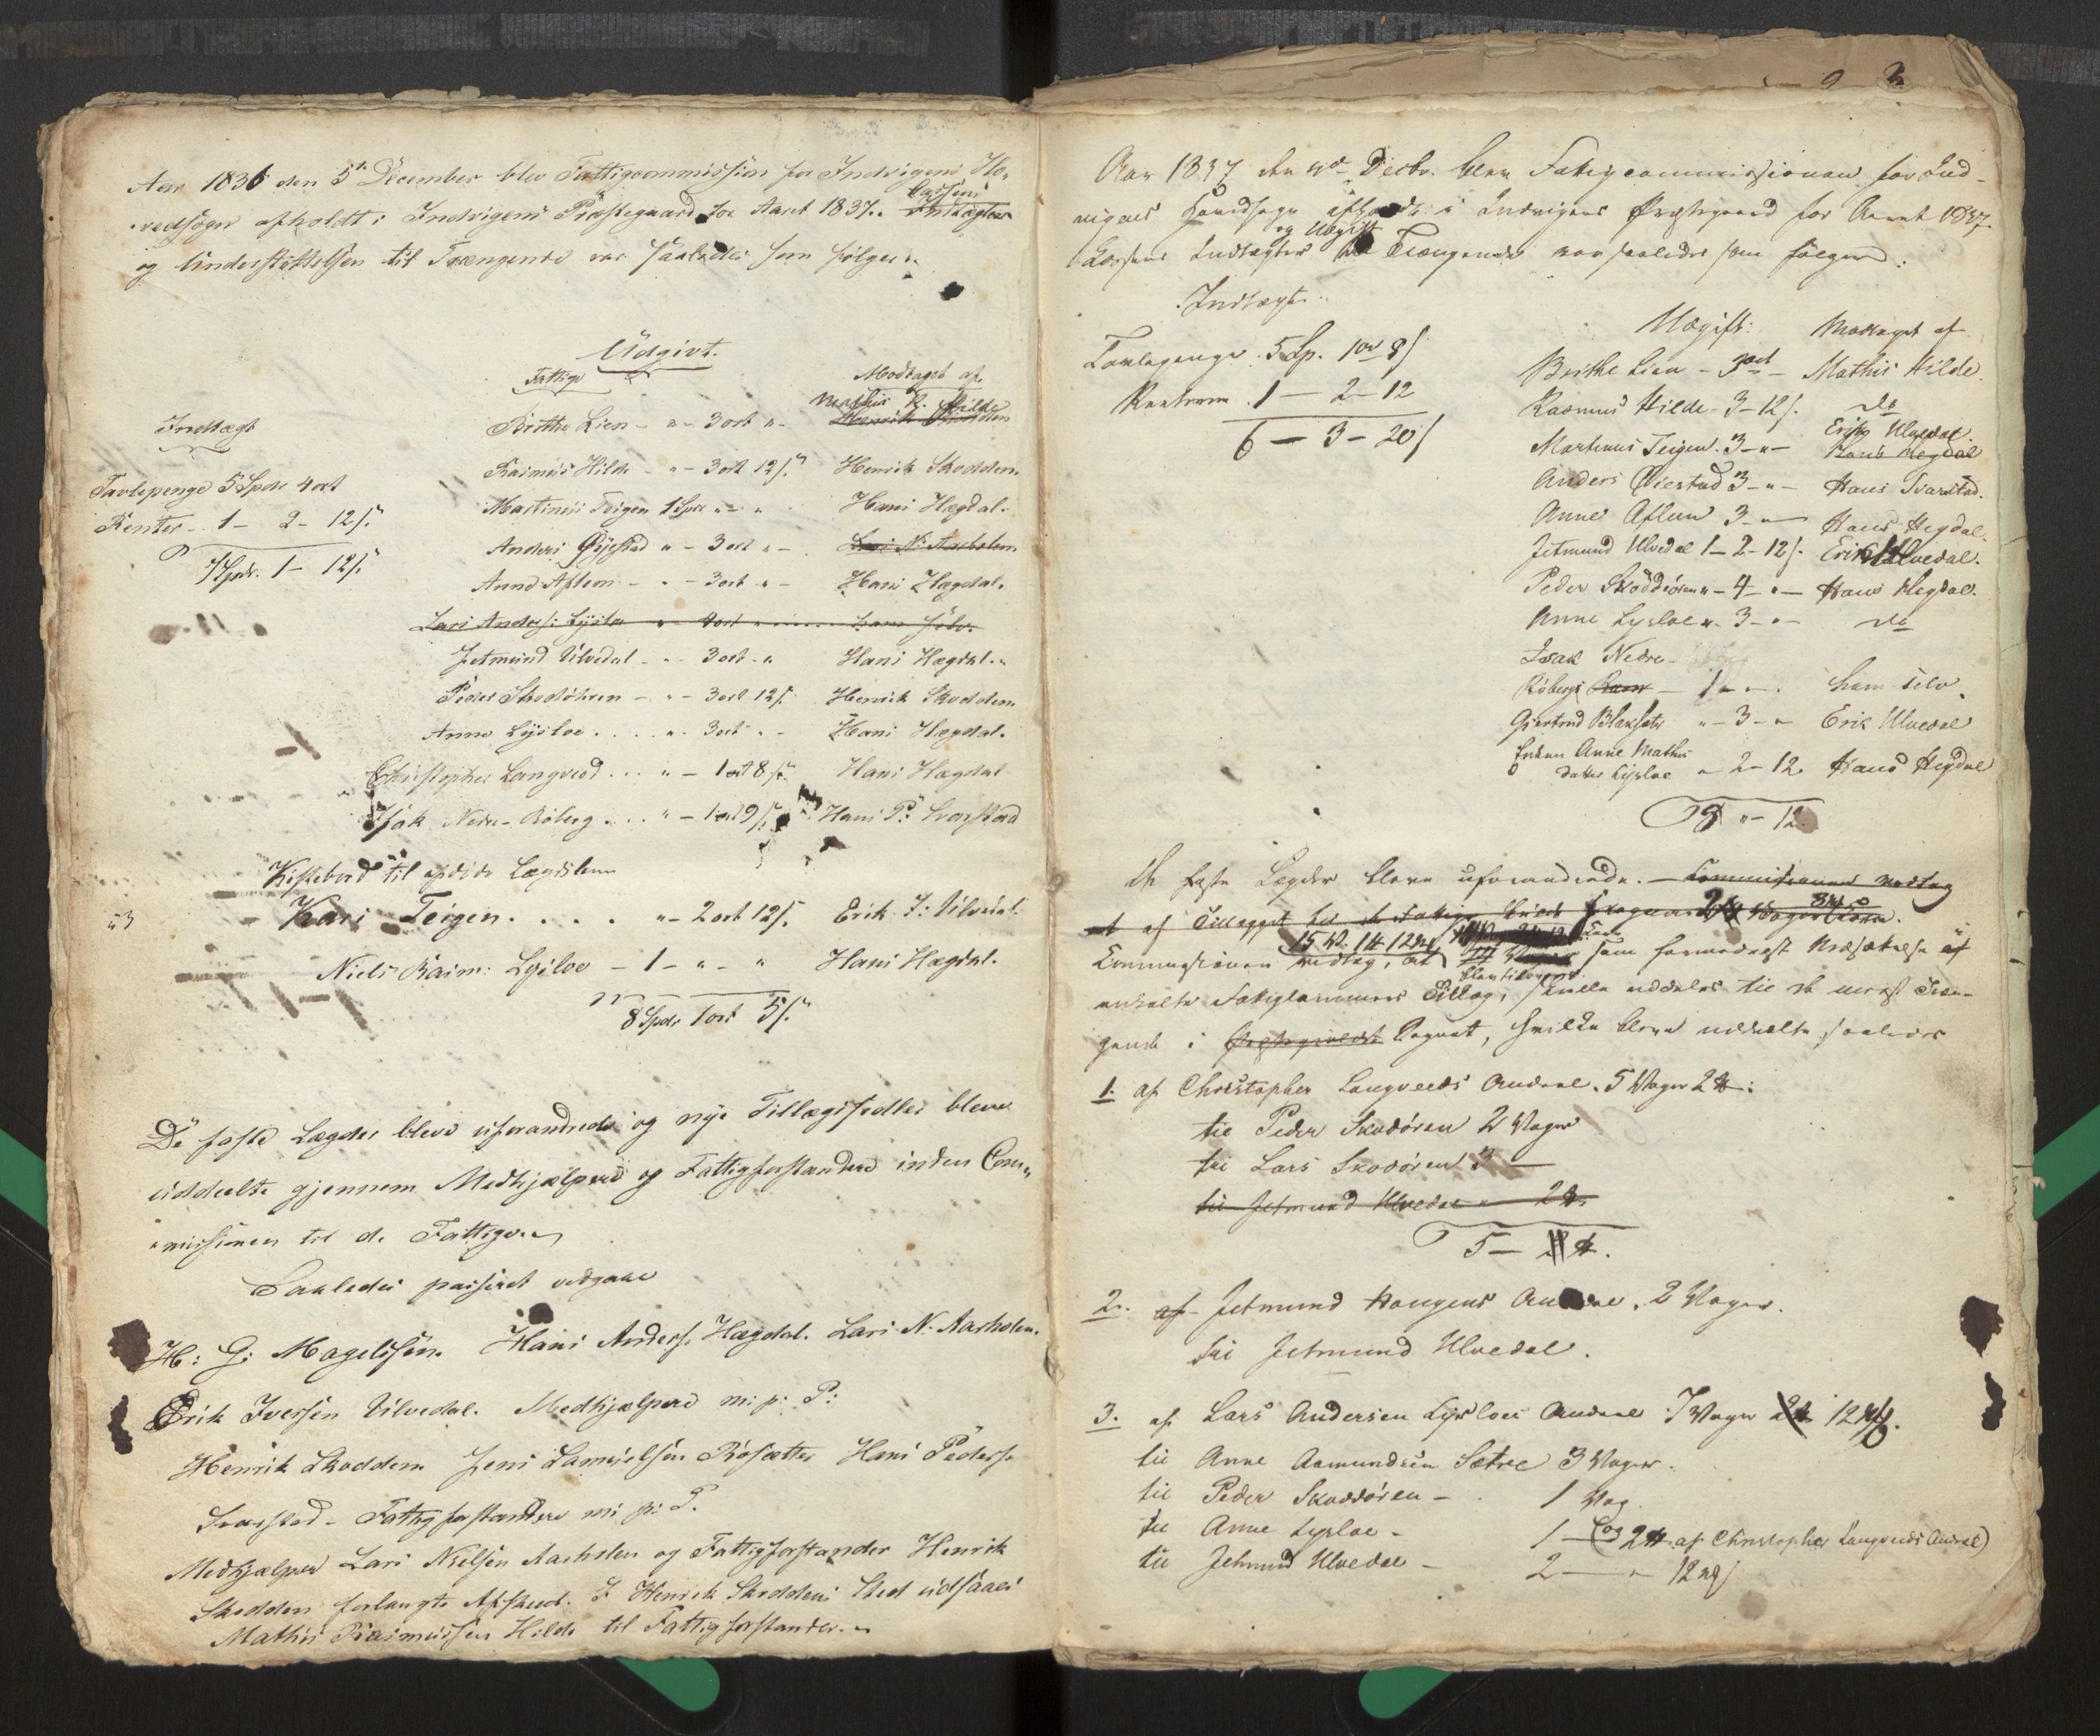 Aar 1836 den 5te December blev Fattigcommission for Indvigens Ho-
vedsogn afholdt i Indvigens Præstegaard for Aaret 1837. Cassens Indtægter
og Understøttelsen til Trængende var saaledes som følger:
Udgivt.
Indtægt
Tavlepenge 5 Spdr 4 ort
Renter - 1 - 2 - 12 s.
7 Spdr. 1 - 12 s.
Fattige Modtaget af
Brithe Lien - " - 3 ort " - Mathis R. Hilde
Rasmus Hilde - " - 3 ort 12 s. Henrik Skodden.
Martinus Teigen 1 Spdr " - " Hans Hægdal.
Anders Øijestad " - 3 ort " - Lars N. Aarholen
Anne Aflem - " - 3 ort " - Hans Hægdal.
Lars Anders: Lysloe " - 4 ort " ham selv.
Jetmund Ulvedal - " - 3 ort - " Hans Hægdal.
Peder Skodøhren - " - 3 ort 12 s. Henrik Skodden
Anne Lysloe . . . . " - 3 ort " - Hans Hægdal.
Christopher Langved . . . " - 1 ort 8 s. Hans Hægdal
Isak Nedre-Røberg . . . " - 1 ort 9 s. Hans P. Svarstad
til afdøde Lægdslem
53 Kari Teigen . . . . . " - 2 ort 12 s. Erik I: Ulvedal
Niels Rasm: Lysloe - 1 - " - " Hans Hægdal.
8 Spdr 1 ort 5 s.
De faste Lægder bleve uforandrede og nye Tillægssedler bleve
uddeelte gjennem Medhjælpere og Fattigforstandere inden Com-
missionen til de Fattige.
Saaledes passeret vedgaae
H: G: Magelssen. Hans Anders. Hægdal. Lars N. Aarholen.
Erik Iversen Ulvedal. Medhjælpere m: p: P:
Henrik Skodden Jens Samuelsen Røsætter Hans Peders.
Svarstad - Fattigforstandere m: p: P.
Medhjælper Lars Nielsen Aarholen og Fattigforstander Henrik
Skodden forlangte Afskeed. I Henrik Skoddens Sted udsaaes
Mathis Rasmussen Hilde til Fattigforstander.
9 2
Aar 1837 den Decbr. blev Fattigcommissionen for Ind-
vigens Hovedsogn afholdt i Indvigens Præstegaard for Aaret 1837.
Cassens Indtægter og Udgift Trængende var saaledes som følger:
Indtægt
Tavlepenge 5 Sp. 1 ort 8 s
Renterne 1 - 2 - 12
6 - 3 - 20 s
Udgift: Modtaget af
Brithe Lien - 3 ort - Mathis Hilde
Rasmus Hilde - 3 - 12 s. do
Martinus Teigen. 3 - " - Erik Ulvedal. Hans Hegdal
Anders Øiestad 3 - " - Hans Svarstad.
Anne Aflem 3 - " - Hans Hegdal.
Jetmund Ulvedal 1 - 2 - 12 s. Erik Ulvedal.
Peder Skoddøren " - 4 - " - Hans Hegdal.
Anne Lysloe " - 3 - " - do
Isak Nedre-
Røbergs - 1 - " - ham selv.
Gjertrud Blaksæter " - 3 - " - Erik Ulvedal
Enken Anne Mathis
datter Lysloe " - 2 - 12 Hans Hegdal
8 " - 12
De faste Lægder bleve uforandrede. - Commissionen vedtog
at af Tillægget for de Fattige
Commissionen vedtog, at 15 V. 1 # 12 som formedelst Nedsættelse af
enkelte Fattiglemmers Tillæg, blev tilovers, skulle uddeles til de meest Træn-
gende i Præstegieldet Sognet, hvilke bleve uddeelte saaledes
1. af Christopher Langveeds Andeel. 5 Voger 2 #:
til Peder Skodøren 2 Voger
til Lars Skodøren 3 -
til Jetmund Ulvedal " 2 #
5 - #.
2. af Jetmund Haugens Andeel. 2 Voger.
til Jetmund Ulvedal.
3. af Lars Andersen Lysloes Andeel 7 Voger 12
til Anne Aamundsen Sætre 3 Voger.
til Peder Skoddøren - 1 Vog.
til Anne Lysloe - 1 - (og 2 # af Christopher Langveeds Andeel)
til Jetmund Ulvedal - 2 - " 12